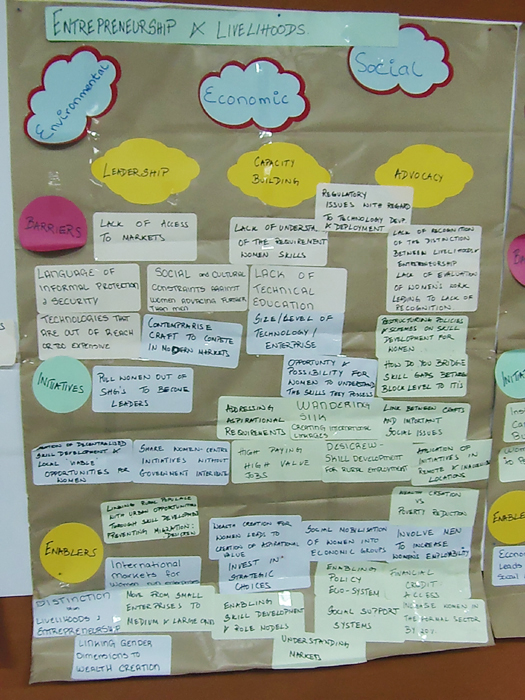 ENTREPRENEURSHIP & LIVELIHOODS
Environmental
Economic
Social
LEADERSHIP
CAPACITY
BUILDING
ADVOCACY
REGULATORY
ISSUES WITH REGARD
TO TECHNOLOGY DEVP.
& DEPLOYMENT
BARRIERS
LACK OF ACCESS
TO MARKETS
LACK OF UNDERSTA
OF THE REQUIREMENT
WOMEN SKILLS
LACK OF RECOGNITION
OF THE DISTINCTION
BETWEEN LIVELIHOOD &
ENTREPRENEURSHIP
LACK OF EVALUATION
OF WOMEN'S WORK
LEADING TO LACK OF
RECOGNITION.
LANGUAGE OF
INFORMAL PROTECTION
& SECURITY
TECHNOLOGIES THAT
ARE OUT OF REACH
OR TOO EXPENSIVE
SOCIAL and CULTURAL
CONSTRAINTS AGAINST
WOMEN ADVANCING FURTHER
THAN MEN
CONTEMPRARISE
CRAFT TO COMPETE
IN MODERN MARKETS
LACK OF
TECHNICAL
EDUCATION
SIZE/LEVEL OF
TECHNOLOGY/
ENTERPRISE
RESTRUCTURING POLICIES
& SCHEMES ON SKILL
DEVELOPMENT FOR
WOMEN
HOW DO YOU BRIDGE
SKILL GAPS BETWEEN
BLOCK LEVEL TO ITIs
INITIATIVES
PULL WOMEN OUT OF
SHG'S TO BECOME
LEADERS
OPPORTUNITY &
POSSIBILITY FOR
WOMEN TO UNDERSTAND
THE SKILLS THEY POSSESS
ADRESSING
ASPIRATIONAL
REQUIREMENTS
WANDERING
SILK
CREATING INTERNATIONAL
LINKAGES
LINK BETWEEN CRAFTS
AND IMPORTANT
SOCIAL ISSUES
OF DECENTRALISED
SKILL DEVELOPMENT &
LOCAL VIABLE
OPPORTUNITIES FOR
WOMEN
SHARE WOMEN-CENTRIC
INITIATIVES WITHOUT
GOVERNMENT
HIGH PAYING
HIGH VALUE
JOBS
DESICREW-
SKILL DEVELOPMENT
FOR RURAL EMPLOYMENT
OF
INITIATIVES IN
REMOTE &
LOCATIONS
LINKING RURAL
WITH URBAN OPPORTUNITIES
THROUGH SKILL DEVELOPMENT
PREVENTING MIGRATION:
DESICREW
WEALTH CREATION
VS
POVERTY REDUCTION
ENABLERS
WEALTH CREATION FOR
WOMEN LEADS TO
CREATION OF ASPIRATIONAL
VALUE
INVEST IN
STRATEGIC
CHOICES
SOCIAL MOBILISATION
OF WOMEN INTO
ECONOMIC GROUPS
INVOLVE MEN
TO INCREASE
WOMEN'S EMPLOYABILITY
INTERNATIONAL
MARKETS FOR
DISTINCTION
LIVELIHOODS &
ENTREPRENEURSHIP
MOVE FROM SMALL
ENTERPRISES TO
MEDIUM & LARGE ONES
ENABLING
SKILL DEVELOPMENT
& ROLE MODELS
ENABLING
POLICY
ECO-SYSTEM
SOCIAL SUPPORT
SYSTEMS
FINANCIAL
CREDIT
ACCESS
WOMEN IN
THE FORMAL SECTOR
LINKING GENDER
DIMENSIONS TO
WEALTH CREATION
UNDERSTANDING
MARKETS